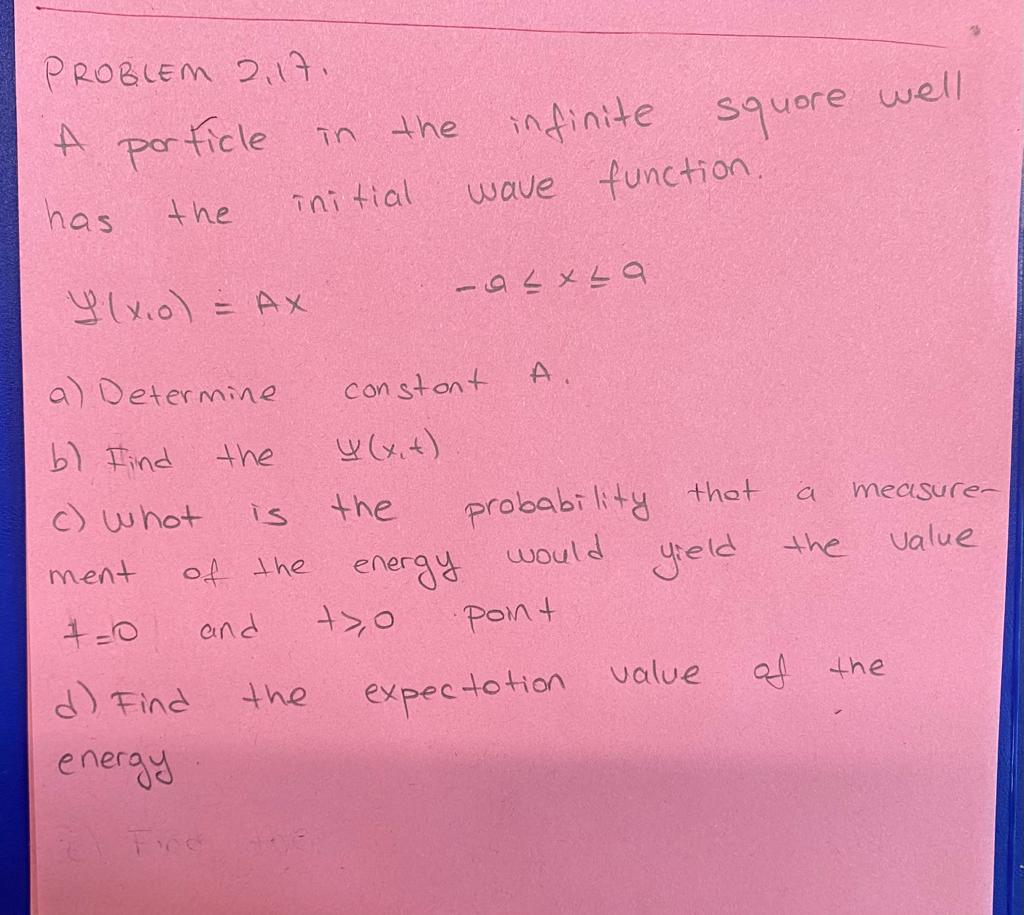 PROBLEM 2.17.
A particle in the infinite square well
has the initial wave function.
Ψ(x,0) = Ax -a ≤ x ≤ a
a) Determine constant A.
b) Find the Ψ(x,t)
c) What is the probability that a measure-
ment of the energy would yield the value
t=0 and t≥0 point
d) Find the expectation value of the
energy.
Find the